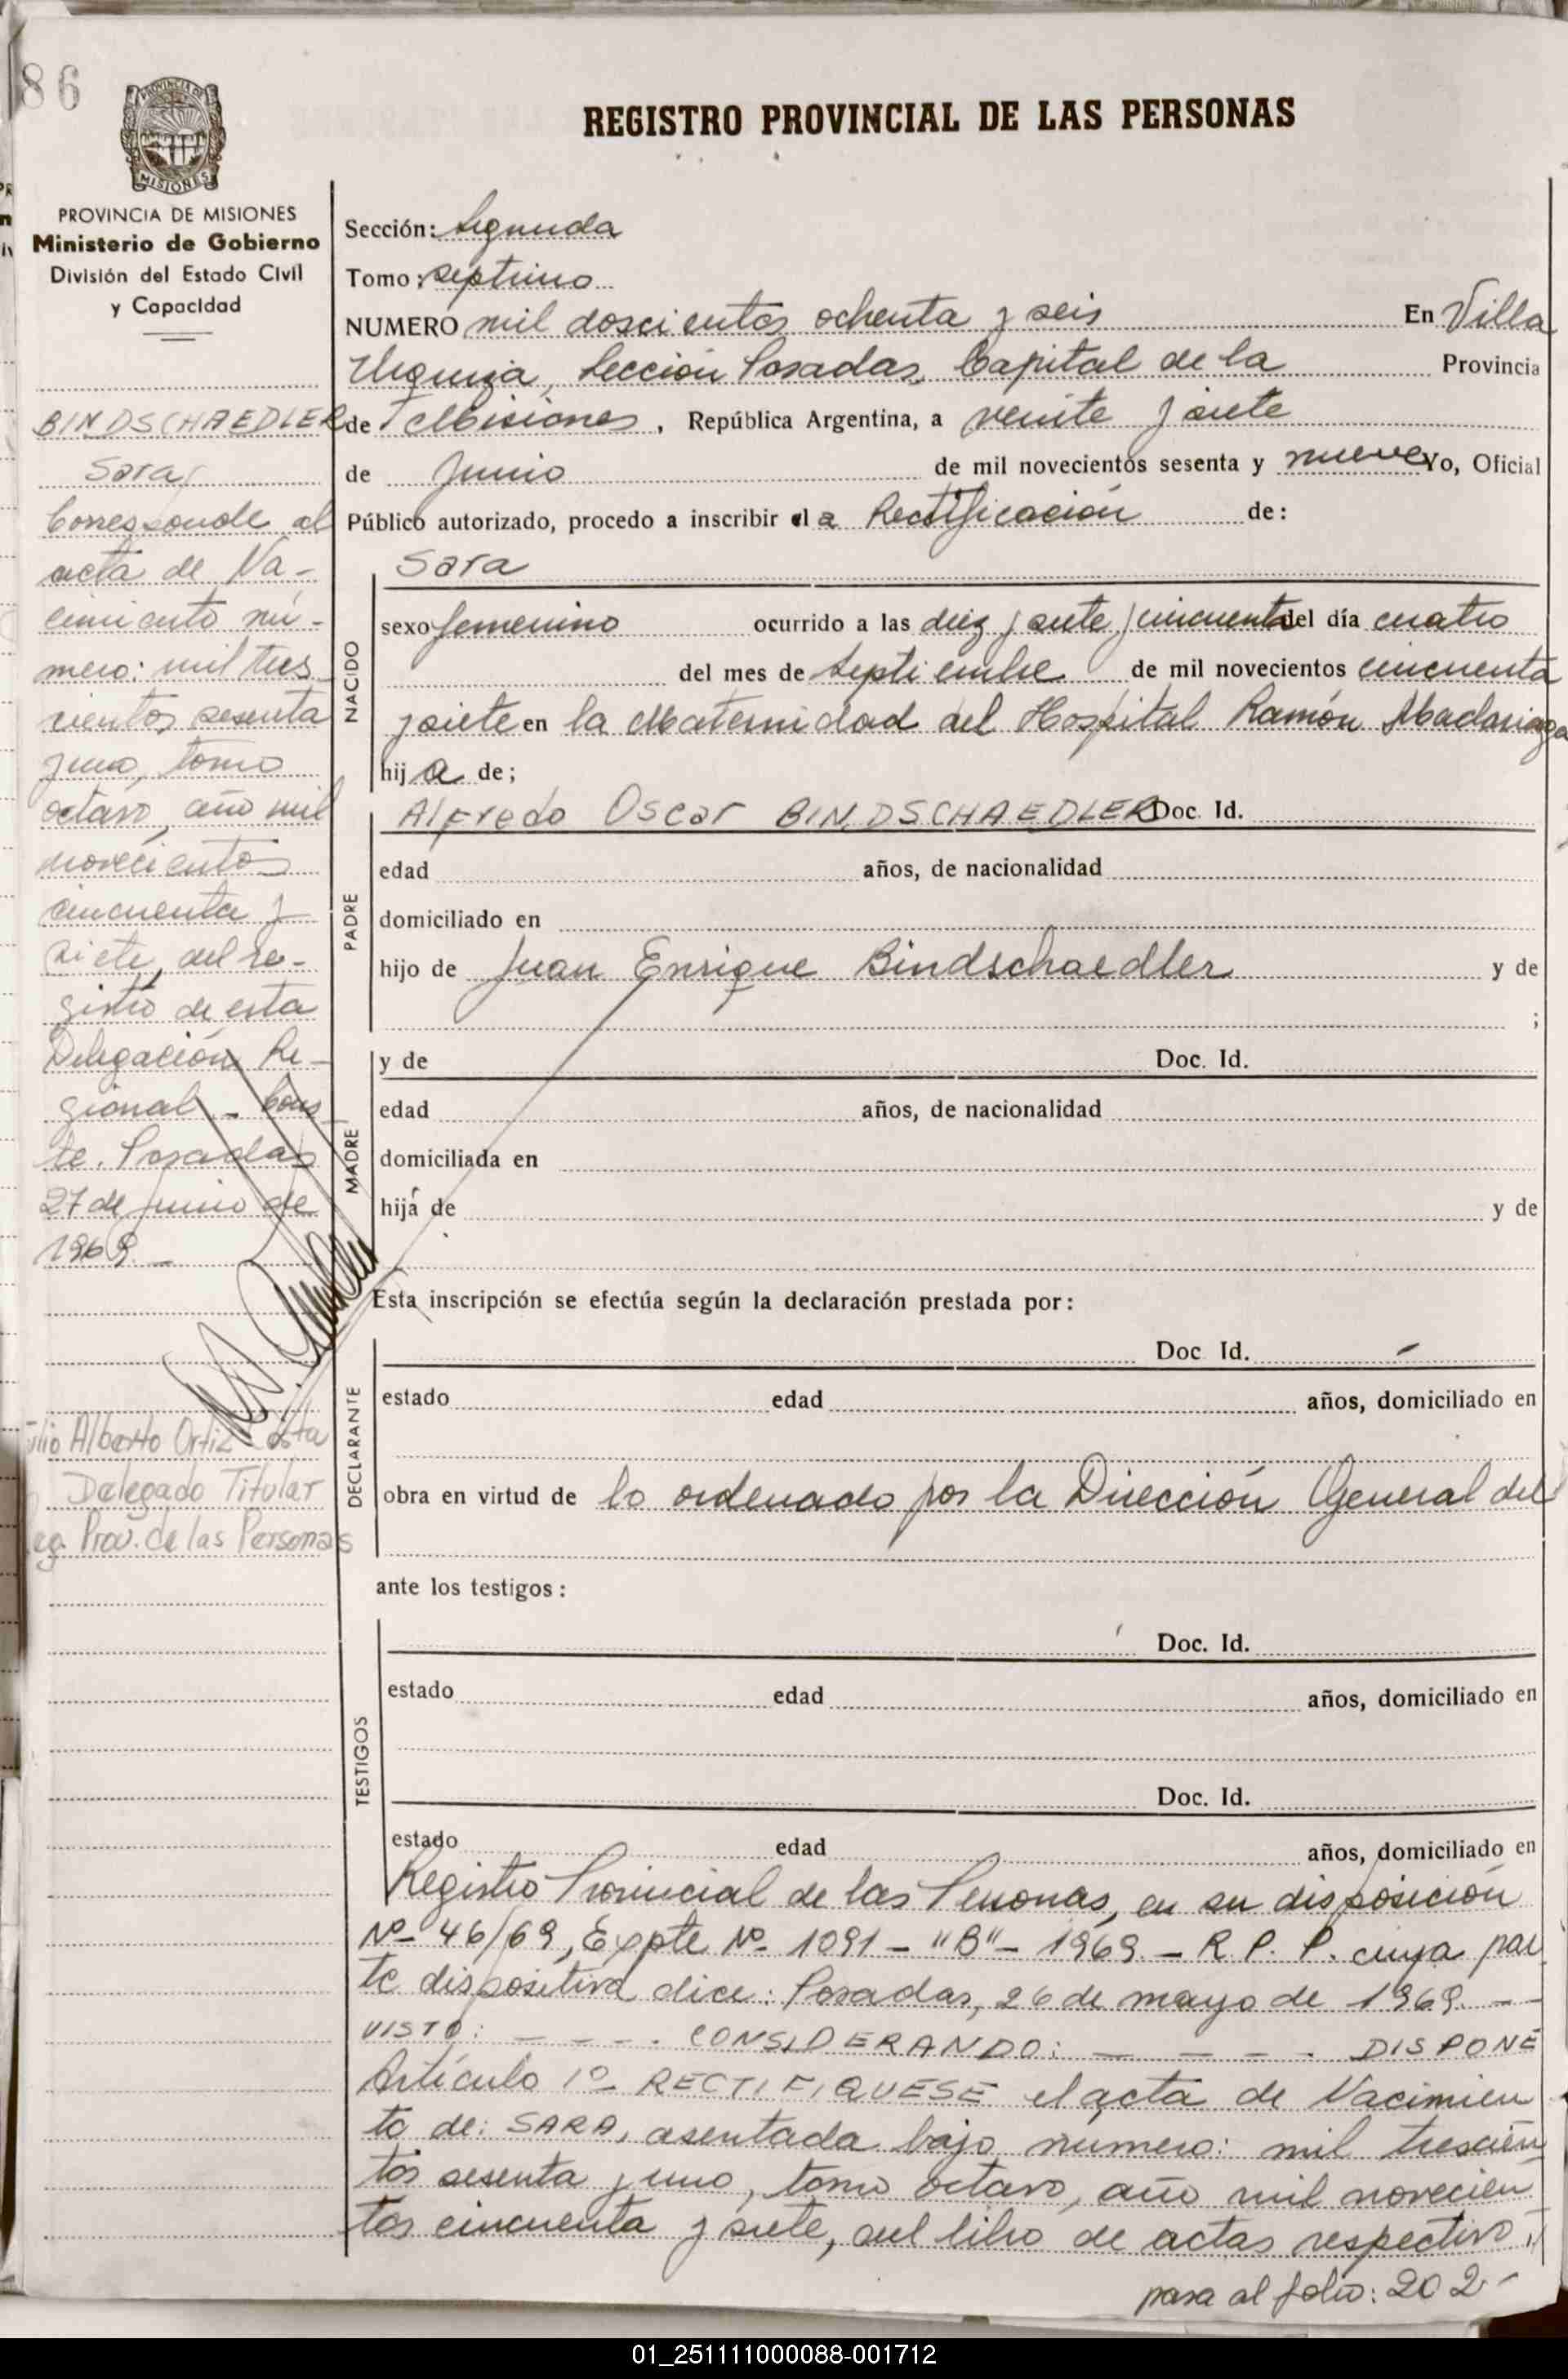 86
PROVINCIA DE
MISIONES
PROVINCIA DE MISIONES
Ministerio de Gobierno
División del Estado Civil
y Capacidad
BINDSCHAEDLER
Sara
Corresponde al
acta de Na-
cimiento nú-
mero: mil tres
cientos sesenta
y uno, tomo
octavo, año mil
novecientos
cincuenta y
siete, del re-
gistro de esta
Delegación Re-
gional - Cons
te. Posadas
27 de junio de
1969.-
ulio Alberto Ortiz Costa
Delegado Titular
eg. Prov. de las Personas
REGISTRO PROVINCIAL DE LAS PERSONAS
Sección: Segunda
Tomo: septimo
NUMERO mil doscientos ochenta y seis En Villa
Urquiza, Sección Posadas, Capital de la Provincia
de Misiones, República Argentina, a veinte y siete
de Junio de mil novecientos sesenta y nueve Yo, Oficial
Público autorizado, procedo a inscribir el a Rectificación de:
NACIDO
Sara
sexo femenino ocurrido a las diez y siete y cincuenta del día cuatro
del mes de Septiembre de mil novecientos cincuenta
y siete en la Maternidad del Hospital Ramón Madariaga
hij a de;
PADRE
Alfredo Oscar BINDSCHAEDLER Doc. Id.
edad años, de nacionalidad
domiciliado en
hijo de Juan Enrique Bindschaedler y de
;
MADRE
y de Doc. Id.
edad años, de nacionalidad
domiciliada en
hija de y de
Esta inscripción se efectúa según la declaración prestada por:
DECLARANTE
Doc Id. -
estado edad años, domiciliado en
obra en virtud de lo ordenado por la Dirección General del
ante los testigos:
TESTIGOS
Doc. Id.
estado edad años, domiciliado en
Doc. Id.
estado edad años, domiciliado en
Registro Provincial de las Personas, en su disposición
Nº 46/69, Expte Nº 1091 - "B" - 1969. - R. P. P. cuya par
te dispositiva dice: Posadas, 26 de mayo de 1969. - -
VISTO: - - - - . CONSIDERANDO: - - - - . DISPONE
Artículo 1º RECTIFIQUESE el acta de Nacimien
to de: SARA, asentada bajo número: mil trescien
tos sesenta y uno, tomo octavo, año mil novecien
tos cincuenta y siete, del libro de actas respectivo,
pasa al folio: 202 -
01_251111000088-001712